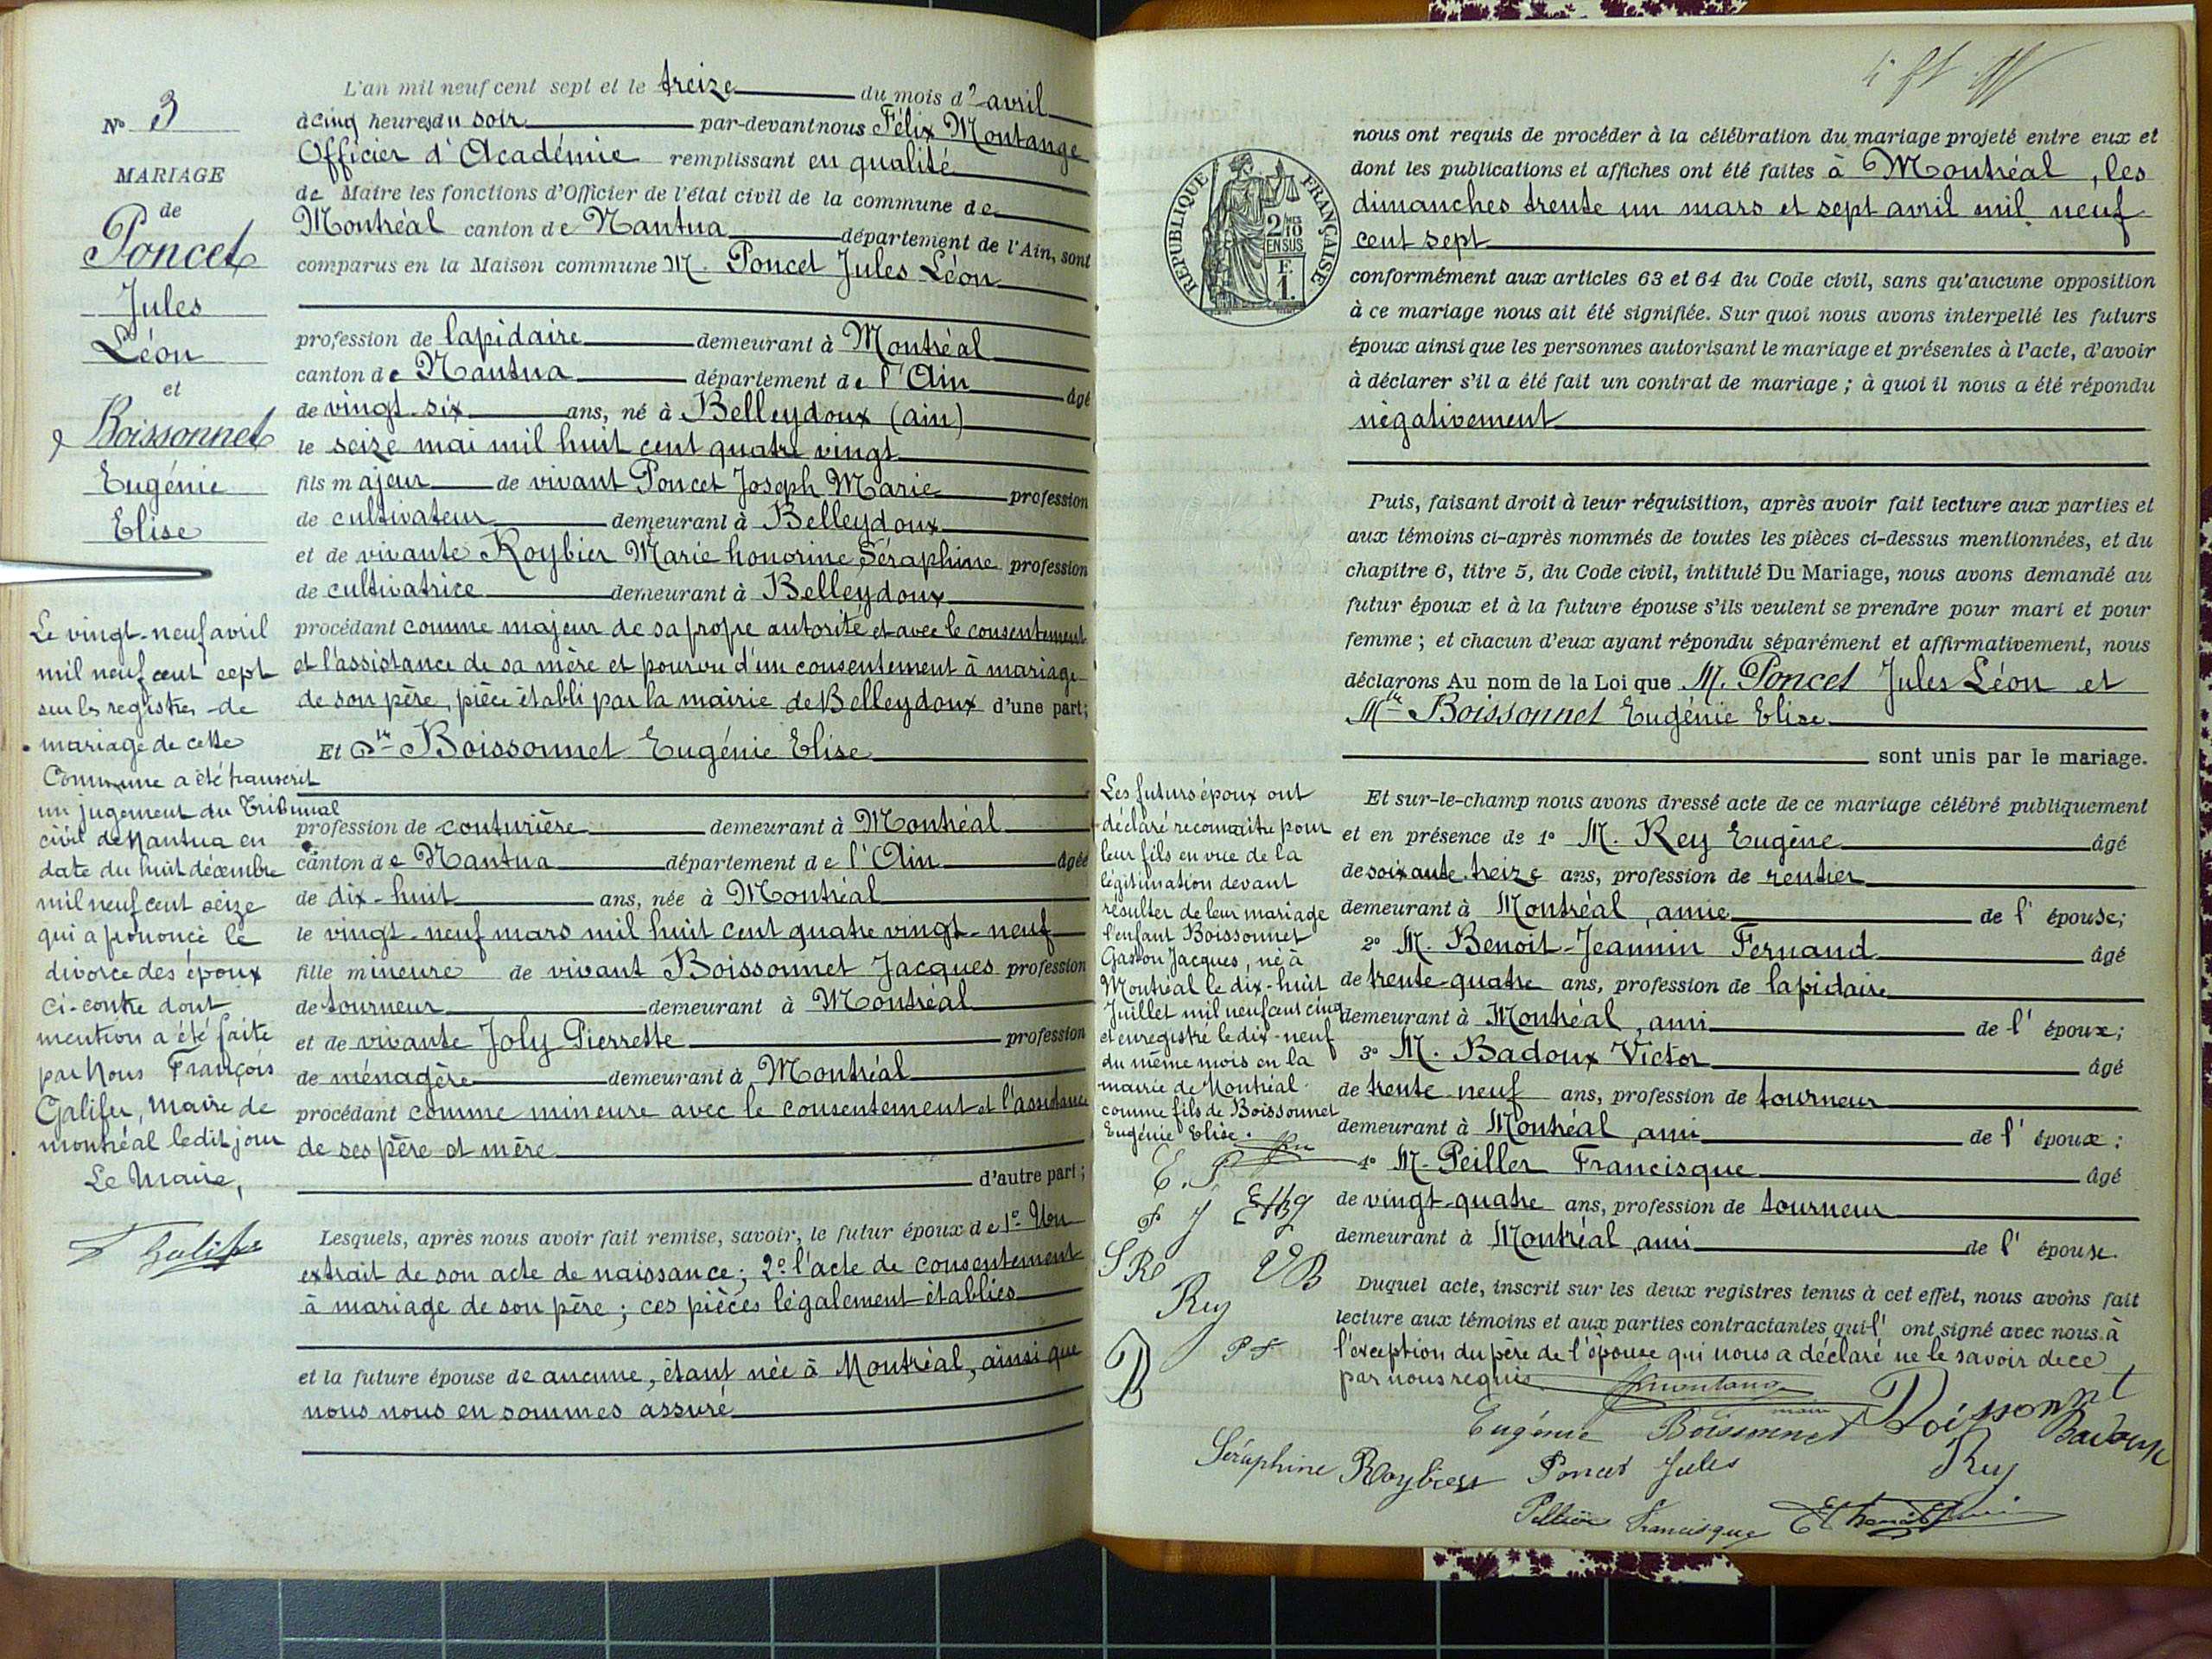 N° 3
MARIAGE
de
Poncet
Jules
Léon
et
Boissonnet
Eugénie
Elise
Le vingt-neuf avril
mil neuf cent sept
sur les registres de
mariage de cette
Commune a été transcrit
un jugement du Tribunal
civil de Nantua en
date du huit décembre
mil neuf cent seize
qui a prononcé le
divorce des époux
ci-contre dont
mention a été faite
par Nous François
Galifer, Maire de
montréal ledit jour
Le Maire,
L'an mil neuf cent sept et le treize du mois d'avril
à cinq heures du soir par-devant nous Félix Montange
Officier d'Académie remplissant en qualité
de Maire les fonctions d'Officier de l'état civil de la commune de
Montréal canton de Nantua département de l'Ain, sont
comparus en la Maison commune M. Poncet Jules Léon
profession de lapidaire demeurant à Montréal
canton de Nantua département de l'Ain âgé
de vingt-six ans, né à Belleydoux (ain)
le seize mai mil huit cent quatre vingt
fils majeur de vivant Poncet Joseph Marie profession
de cultivateur demeurant à Belleydoux
et de vivante Roybier Marie honorine Séraphine profession
de cultivatrice demeurant à Belleydoux
procédant comme majeur de sa propre autorité et avec le consentement
et l'assistance de sa mère et pourvu d'un consentement à mariage
de son père, pièce établi par la mairie de Belleydoux d'une part;
Et Dlle Boissonnet Eugénie Elise
profession de couturière demeurant à Montréal
canton de Nantua département de l'Ain âgée
de dix-huit ans, née à Montréal
le vingt-neuf mars mil huit cent quatre vingt-neuf
fille mineure de vivant Boissonnet Jacques profession
de tourneur demeurant à Montréal
et de vivante Joly Pierrette profession
de ménagère demeurant à Montréal
procédant comme mineure avec le consentement et l'assistance
de ses père et mère
d'autre part;
Lesquels, après nous avoir fait remise, savoir, le futur époux de 1° Un
extrait de son acte de naissance; 2° l'acte de consentement
à mariage de son père; ces pièces légalement établies
et la future épouse de aucune, étant née à Montréal, ainsi que
nous nous en sommes assuré
RÉPUBLIQUE FRANÇAISE
2/10 EN SUS
F. 1.
nous ont requis de procéder à la célébration du mariage projeté entre eux et
dont les publications et affiches ont été faites à Montréal, les
dimanches trente un mars et sept avril mil neuf
cent sept
conformément aux articles 63 et 64 du Code civil, sans qu'aucune opposition
à ce mariage nous ait été signifiée. Sur quoi nous avons interpellé les futurs
époux ainsi que les personnes autorisant le mariage et présentes à l'acte, d'avoir
à déclarer s'il a été fait un contrat de mariage; à quoi il nous a été répondu
négativement
Puis, faisant droit à leur réquisition, après avoir fait lecture aux parties et
aux témoins ci-après nommés de toutes les pièces ci-dessus mentionnées, et du
chapitre 6, titre 5, du Code civil, intitulé Du Mariage, nous avons demandé au
futur époux et à la future épouse s'ils veulent se prendre pour mari et pour
femme; et chacun d'eux ayant répondu séparément et affirmativement, nous
déclarons Au nom de la Loi que M. Poncet Jules Léon et
Mlle Boissonnet Eugénie Elise
sont unis par le mariage.
Les futurs époux ont
déclaré reconnaître pour
leur fils en vue de la
légitimation devant
résulter de leur mariage
l'enfant Boissonnet
Gaston Jacques, né à
Montréal le dix-huit
Juillet mil neuf cent cinq
et enregistré le dix-neuf
du même mois en la
mairie de Montréal
comme fils de Boissonnet
Eugénie Elise.
E. P
VB
Rey
Et sur-le-champ nous avons dressé acte de ce mariage célébré publiquement
et en présence de 1° M. Rey Eugène âgé
de soixante-treize ans, profession de rentier
demeurant à Montréal, amie de l'épouse;
2° M. Benoit-Jeannin Fernand âgé
de trente-quatre ans, profession de lapidaire
demeurant à Montréal, ami de l'époux;
3° M. Badoux Victor âgé
de trente neuf ans, profession de tourneur
demeurant à Montréal, ami de l'époux;
4° M. Peiller Francisque âgé
de vingt-quatre ans, profession de tourneur
demeurant à Montréal, ami de l'épouse.
Duquel acte, inscrit sur les deux registres tenus à cet effet, nous avons fait
lecture aux témoins et aux parties contractantes qui l'ont signé avec nous à
l'exception du père de l'épouse qui nous a déclaré ne le savoir de ce
par nous requis
Eugénie Boissonnet Boissonnet Badoux
Séraphine Roybier Poncet Jules Rey
Francisque